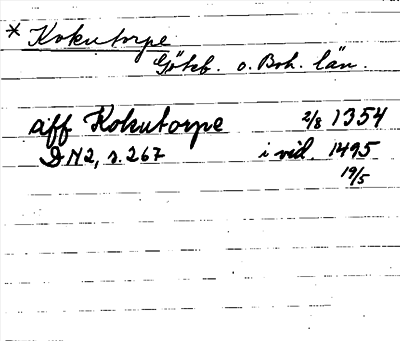 * Kokutorpe
Göteb. o. Boh. län.
aff Kokutorpe 2/8 1354
DN 2, s. 267 i vid. 1495
19/5